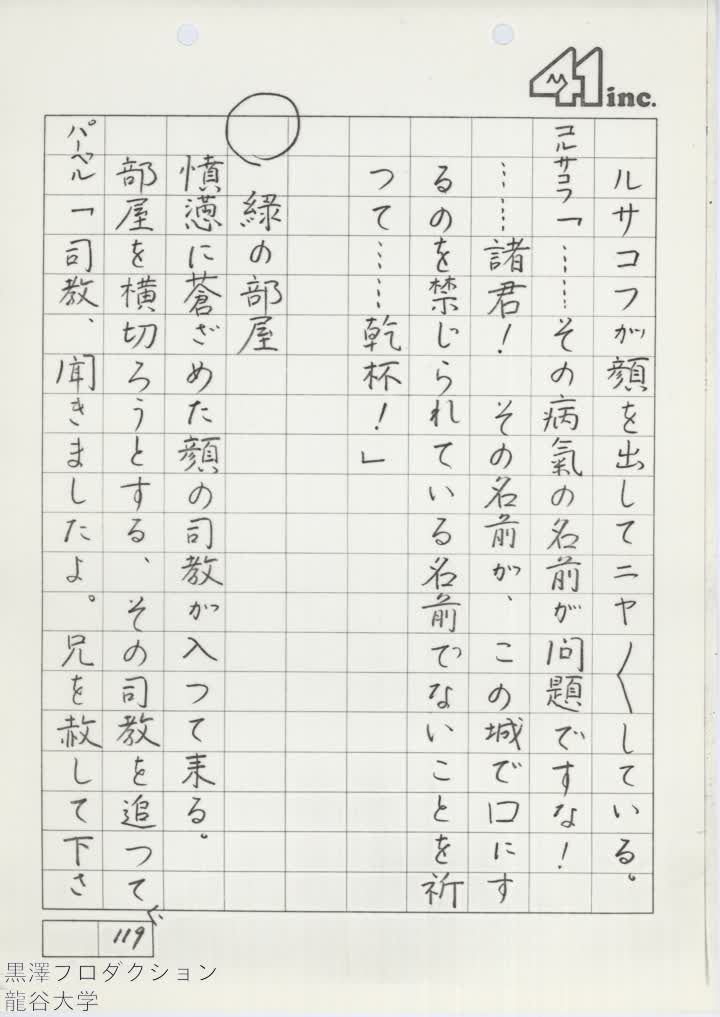 41 inc.
ルサコフが顔を出してニヤ〳〵している。
コルサコフ「……その病氣の名前が問題ですな！
……諸君！　その名前が、この城で口にす
るのを禁じられている名前でないことを祈
つて……乾杯！」
○
緑の部屋
憤懣に蒼ざめた顔の司教が入つて来る。
部屋を横切ろうとする、その司教を追つて、
パーベル「司教、聞きましたよ。兄を赦して下さ
119
黒澤プロダクション
龍谷大学